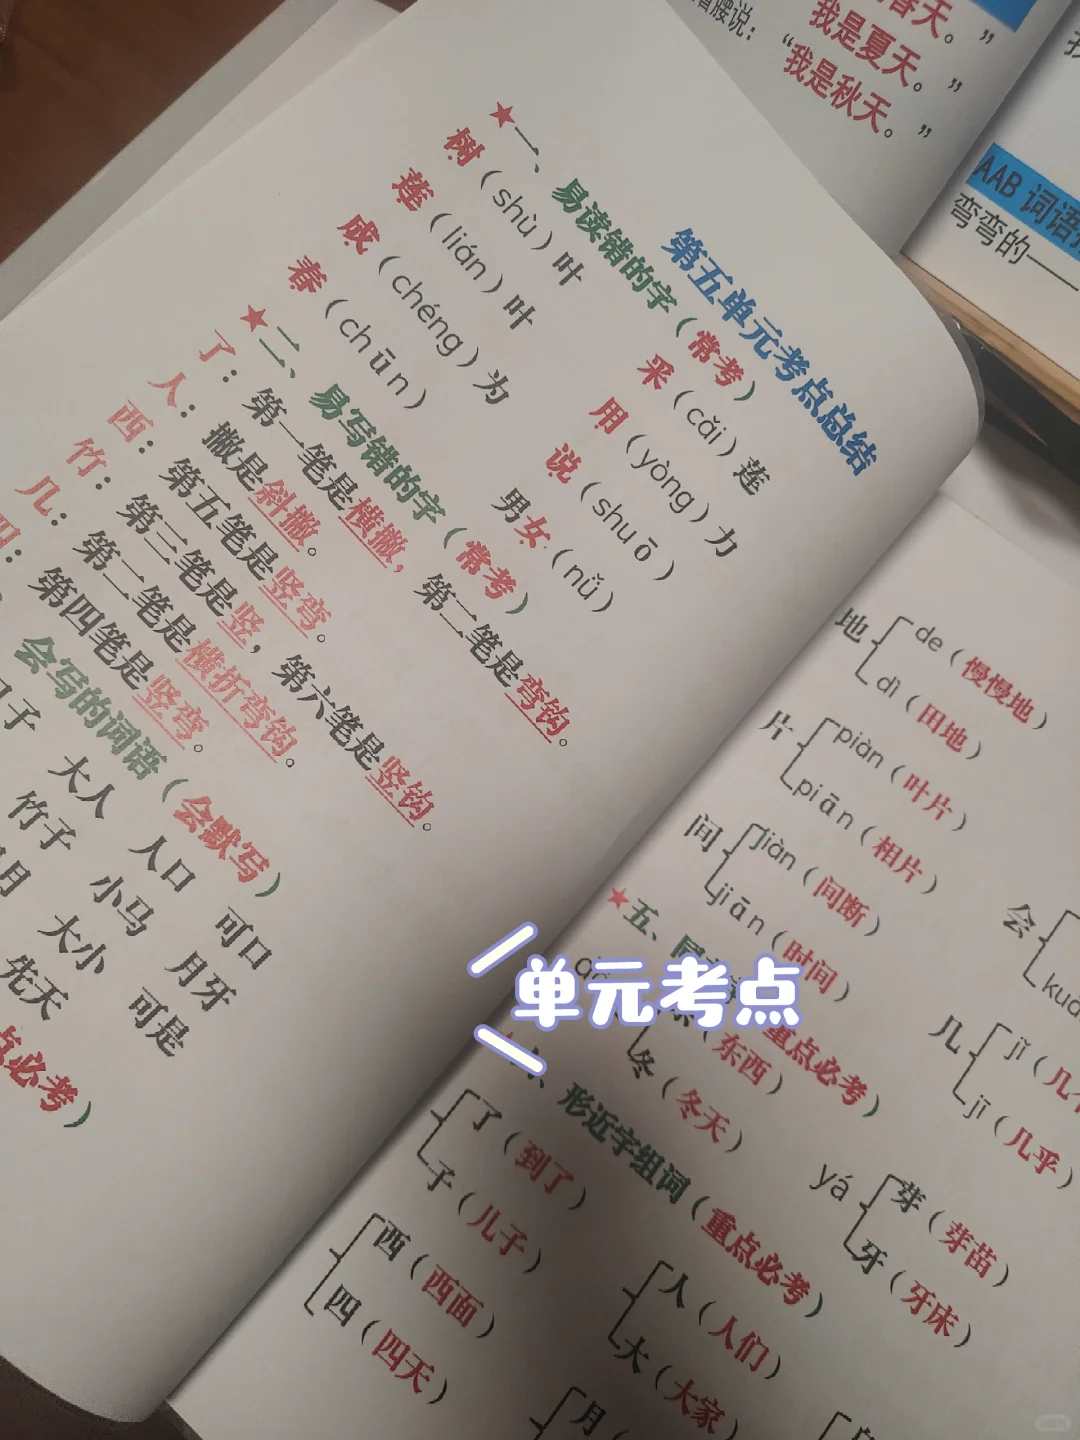 我是夏天。”
“我是秋天。”
AAB 词语
弯弯的——
第五单元考点总结
★一、易读错的字（常考）
树（shù）叶 采（cǎi）莲
莲（lián）叶 用（yòng）力
成（chéng）为 说（shuō）
春（chūn） 男女（nǚ）
★二、易写错的字（常考）
了：第一笔是横撇，第二笔是弯钩。
人：撇是斜撇。
西：第五笔是竖弯。
竹：第三笔是竖，第六笔是竖钩。
几：第二笔是横折弯钩。
四：第四笔是竖弯。
会写的词语（会默写）
大人 人口 可口
竹子 小马 月牙
大小 可是
先天
点必考）
地 de（慢慢地）
dì（田地）
片 piàn（叶片）
piān（相片）
间 jiàn（间断）
jiān（时间）
会
几 jǐ
jī（几乎）
★五、
重点必考）
（东西）
冬（冬天）
yá 芽（芽苗）
牙（牙床）
六、形近字组词（重点必考）
了（到了）
子（儿子）
人（人们）
大（大家）
西（西面）
四（四天）
月
单元考点